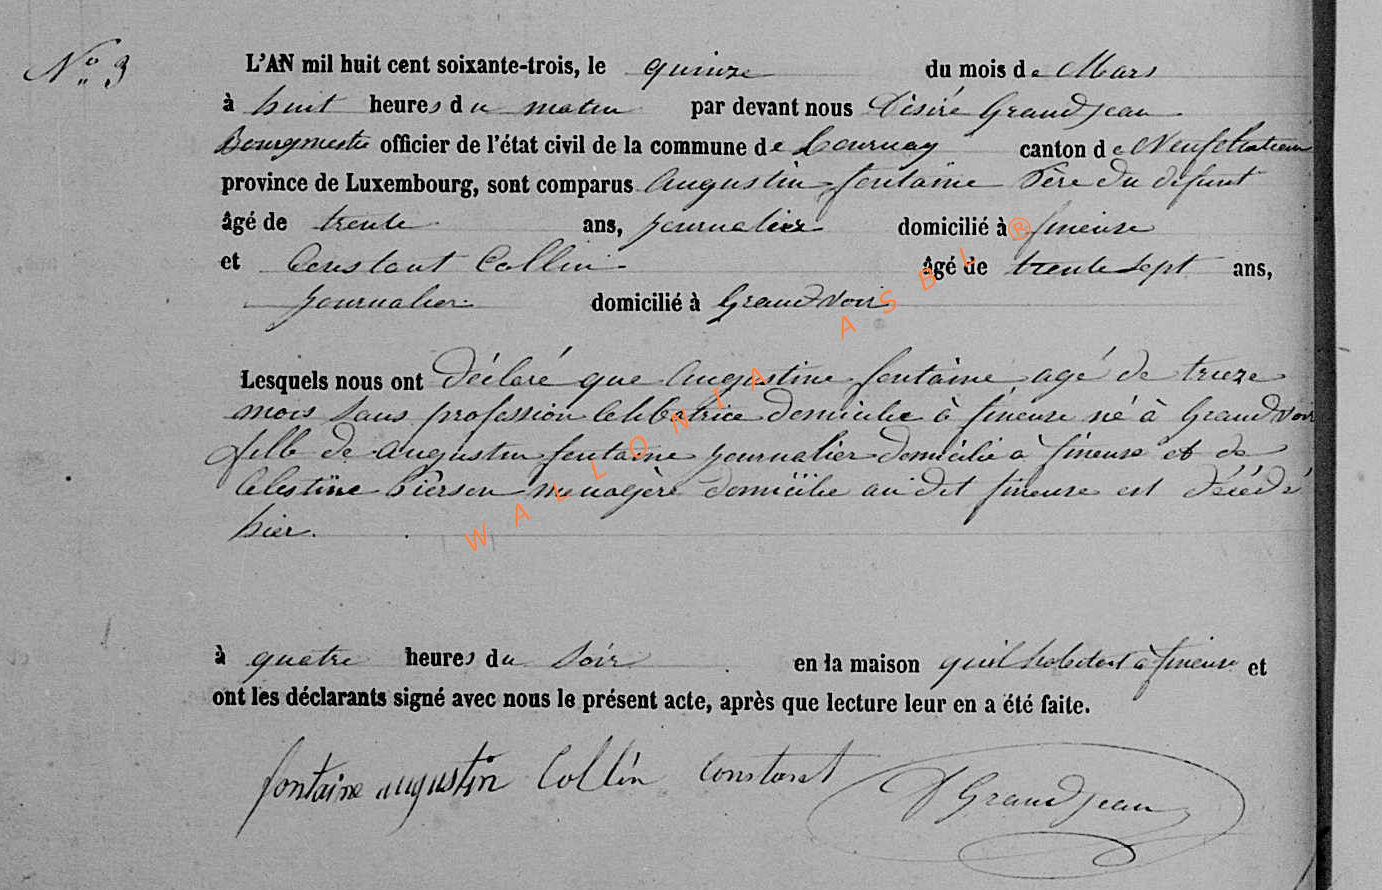 N° 3
L'AN mil huit cent soixante-trois, le quinze du mois de Mars
à huit heures du matin par devant nous Désiré Grandjean
Bourgmestre officier de l'état civil de la commune de Tournay canton de Neufchateau
province de Luxembourg, sont comparus Augustin fontaine Père du défunt
âgé de trente ans, journalier domicilié à fineuse
et Constant Collin âgé de trente sept ans,
journalier domicilié à Grandvoir
Lesquels nous ont déclaré que Augustine fontaine agé de treize
mois sans profession Celibatrice domicilie à fineuse né à Grandvoir
fille de Augustin fontaine journalier domicilié à fineuse et de
Celestine Pierson menagère domicilie au dit fineuse est décédé
hier.
à quatre heures du soir en la maison quil habitent à fineuse et
ont les déclarants signé avec nous le présent acte, après que lecture leur en a été faite.
fontaine augustin Collin Constant D Grandjean
WALLONIA ASBL ®